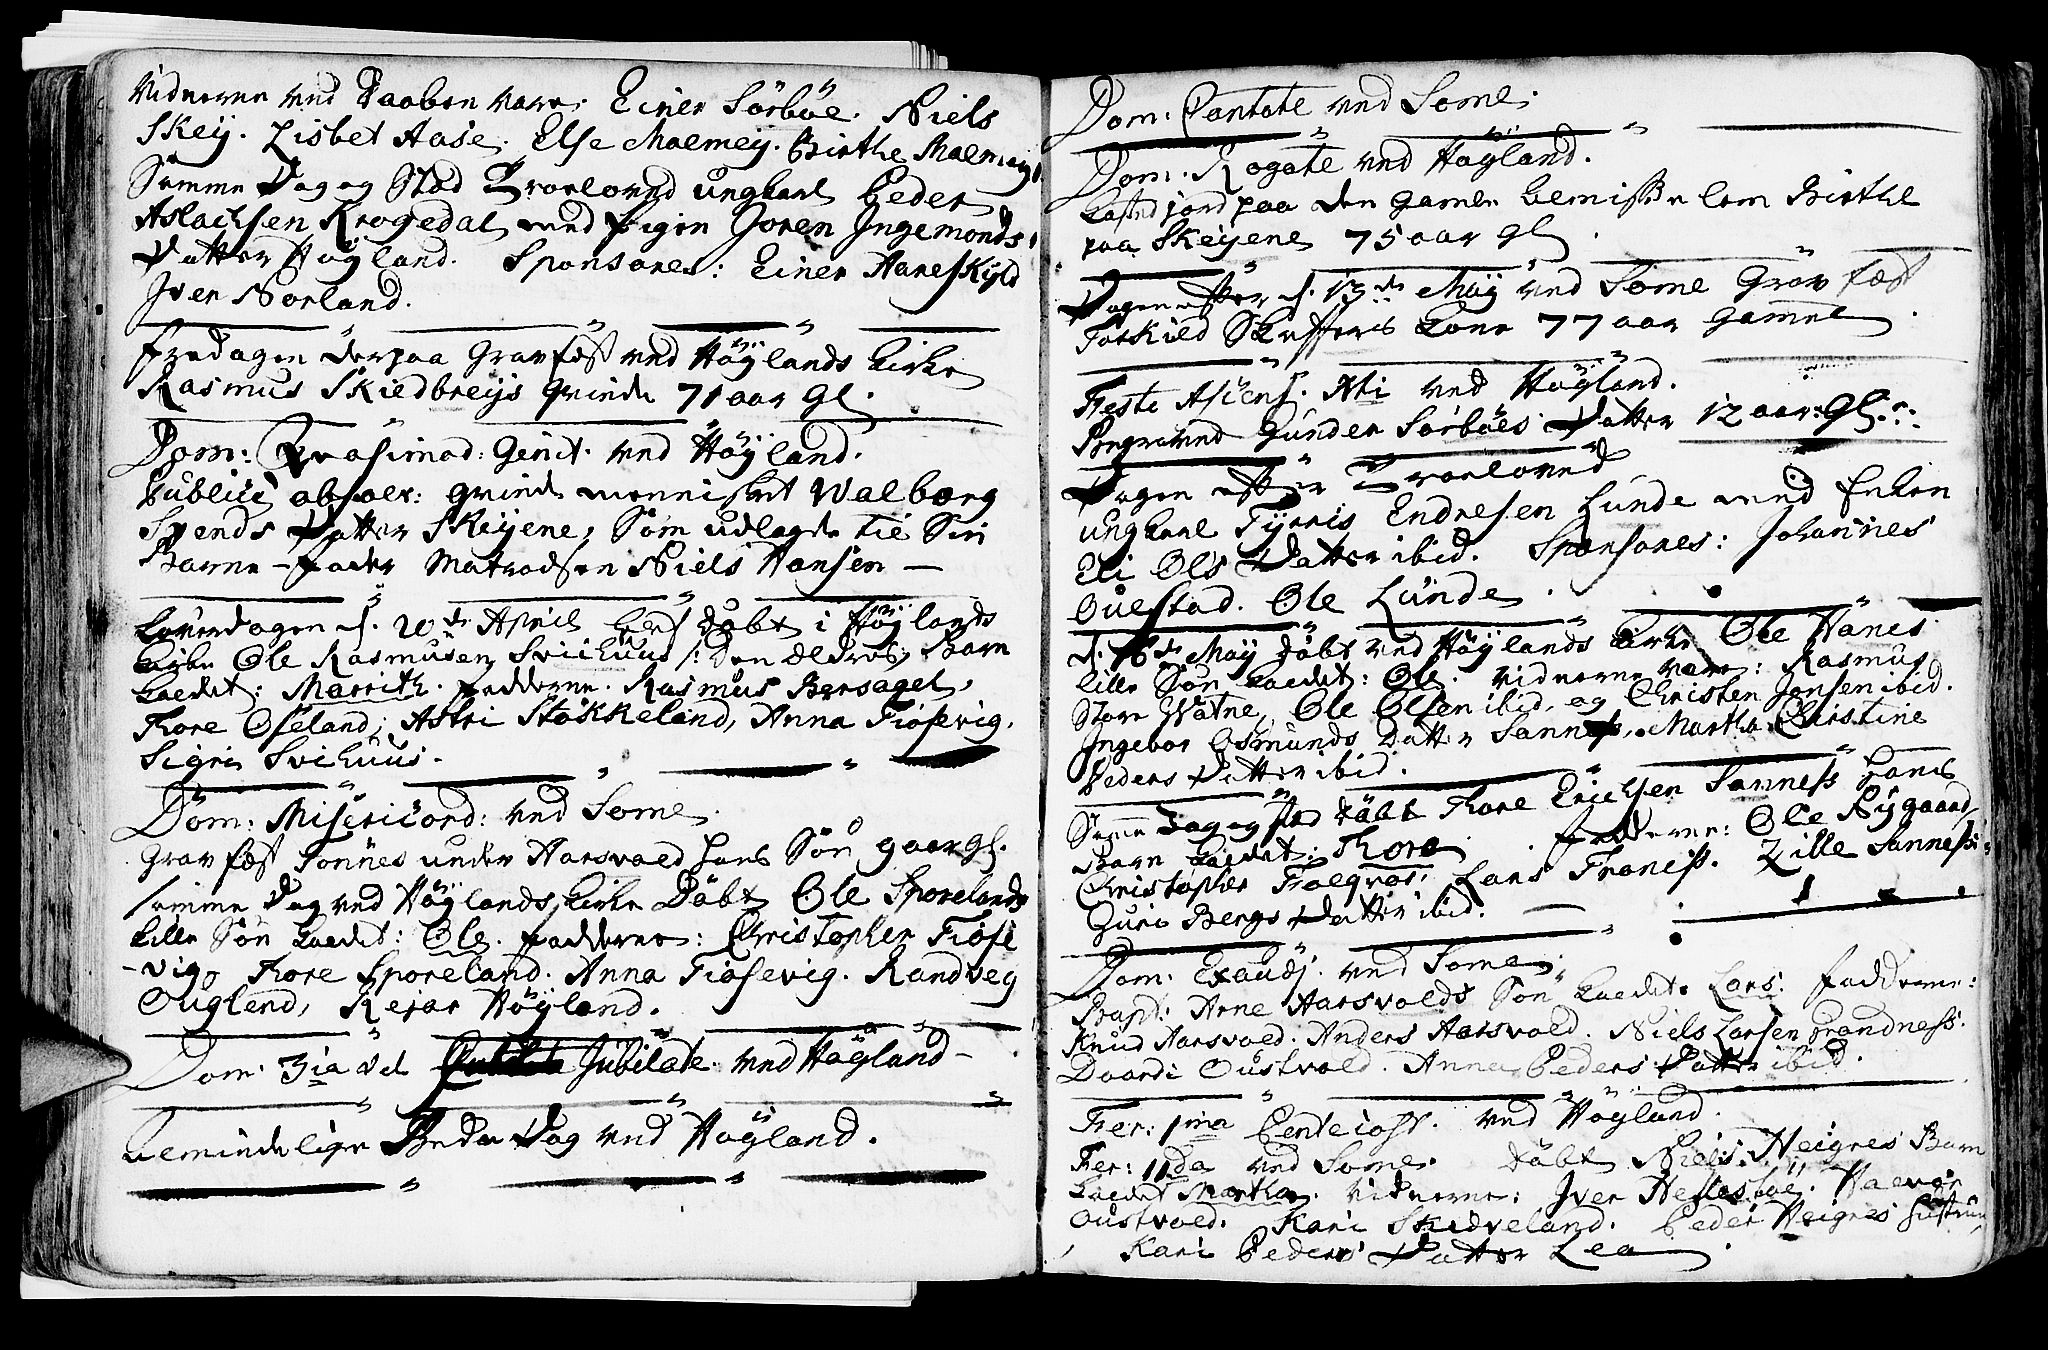 Vidnerne ved Daaben vare: Einer Sörböe. Niels
Skey. Lisbet Aase. Else Malmey. Birthe Malmey
Samme Dag og Stæd Troeloved ungkarl Peder
Aslachsen Krogedal med Pigen Joren Ingemonds
Datter Höyland. Sponsores: Einer Hareskyld
Iver Norland.
Fredagen derpaa Gravfæst ved Höylands Kirke
Rasmus Skiedbreys Qvinde 71 aar gl.
Dom: Qvasimod: Genit. ved Höyland.
Publicè absolv: Qvinde mennisket Walborg
Svends Datter Skeyene, Som udlagde til Sin
Barne-fader Matrodsen Niels Hansen —
Löverdagen d. 20de April döbt i Höylands
Kirke Ole Rasmusen Svihuus /: Den Eldres: Barn
kaldet: Marrith. fadderne. Rasmus Bersagel,
Thore Oseland, Astri Stokkeland, Anna Fiosevig.
Sigri Svihuus.
Dom: Misericord: ved Some.
Gravfæst Tonnes under Aarsvold hans Sön 9 aar gl.
samme Dag ved Höylands Kirke Döbt Ole Sporelands
lille Sön kaldet: Ole. fadderne: Christopher Fiose
-vig, Thore Sporeland. Anna Fiosevig. Randveg
Ouglend, Reiar Höyland.
Dom: 3tia vel Jubilate ved Höyland —
Almindelige Bede Dag ved Höyland.
Dom: Cantate ved Some.
Dom: Rogate ved Höyland.
Kasted jord paa den gamle Lem Birthe
paa Skeyene 75 aar gl.
Dagen efter d. 13de May ved Some Grav fæst
Torkild Kone 77 aar gamel.
Festo Ascens. Xti ved Höyland.
Begraved Gunder Sörböes Datter 12 aar: gl.
Dagen efter Troeloved
ungkarl Tyrris Endresen Lunde med Enken
Eli Ols Datter ibid. Sponsores: Johannes
Ouestad. Ole Lunde.
d. 16de May döbt ved Höylands Kirke Ole Hanes
lille Sön kaldet: Ole. Vidnerne vare: Rasmus
Store Watne, Ole Olsen ibid, og Christen Jensen ibid.
Ingebor Osmunds Datter Sannes, Martha Christine
Peders Datter ibid.
Samme Dag og stæd döbt Thore Erichsen Sanness hans
Barn kaldet: Thore. fadderne: Ole Rygaard,
Christopher Lars Zille Sanness
Guri Bergs Datter ibid.
Dom: Exaudj. ved Some.
Bapt: Arne Aarsvolds Sön kaldet: Lars. Fadderne:
Knud Aarsvold. Anders Aarsvold. Niels Larsen Brandness.
Daardi Oustvold. Anna Peders Datter ibid.
Fer: 1ma Pentecost. ved Höyland.
Fer: 11da ved Some. döbt Niels Heigres Barn
kaldet Martha. Vidnerne: Iver
Oustvold. Kari Skidveland. Peder Heigres hustrue
Kari Peders Datter Lea.